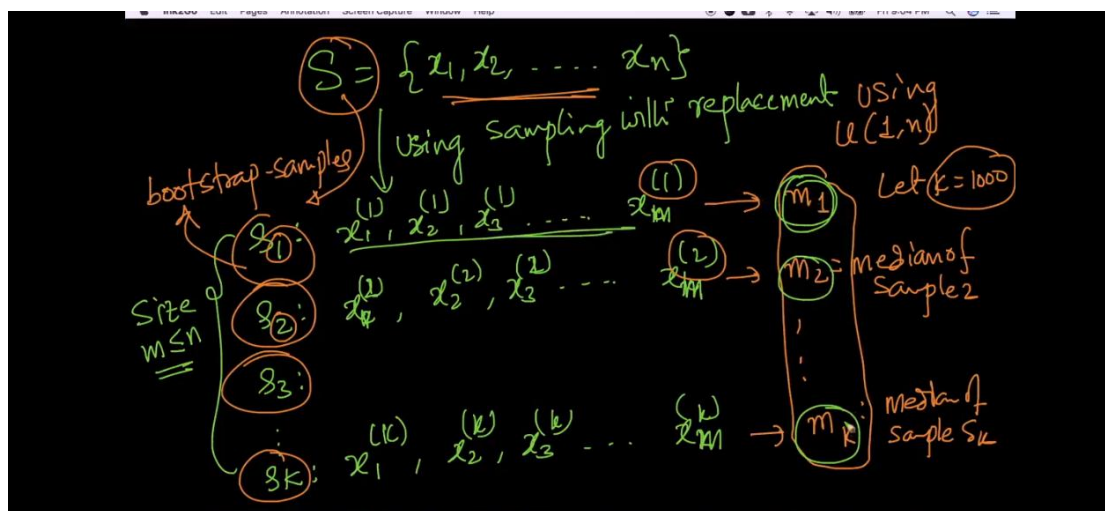 Ink2Go Edit Pages Annotation Screen Capture Window Help Fri 9:04 PM
S = {x1, x2, ..... xn}
using sampling with replacement using
U(1,n)
bootstrap-samples
Let k=1000
s1: x1^(1), x2^(1), x3^(1) ..... xm^(1) → m1
s2: x1^(2), x2^(2), x3^(2) .... xm^(2) → m2 = median of
sample 2
size
m≤n
s3:
sk: x1^(k), x2^(k), x3^(k) ... xm^(k) → mk
median of
sample Sk